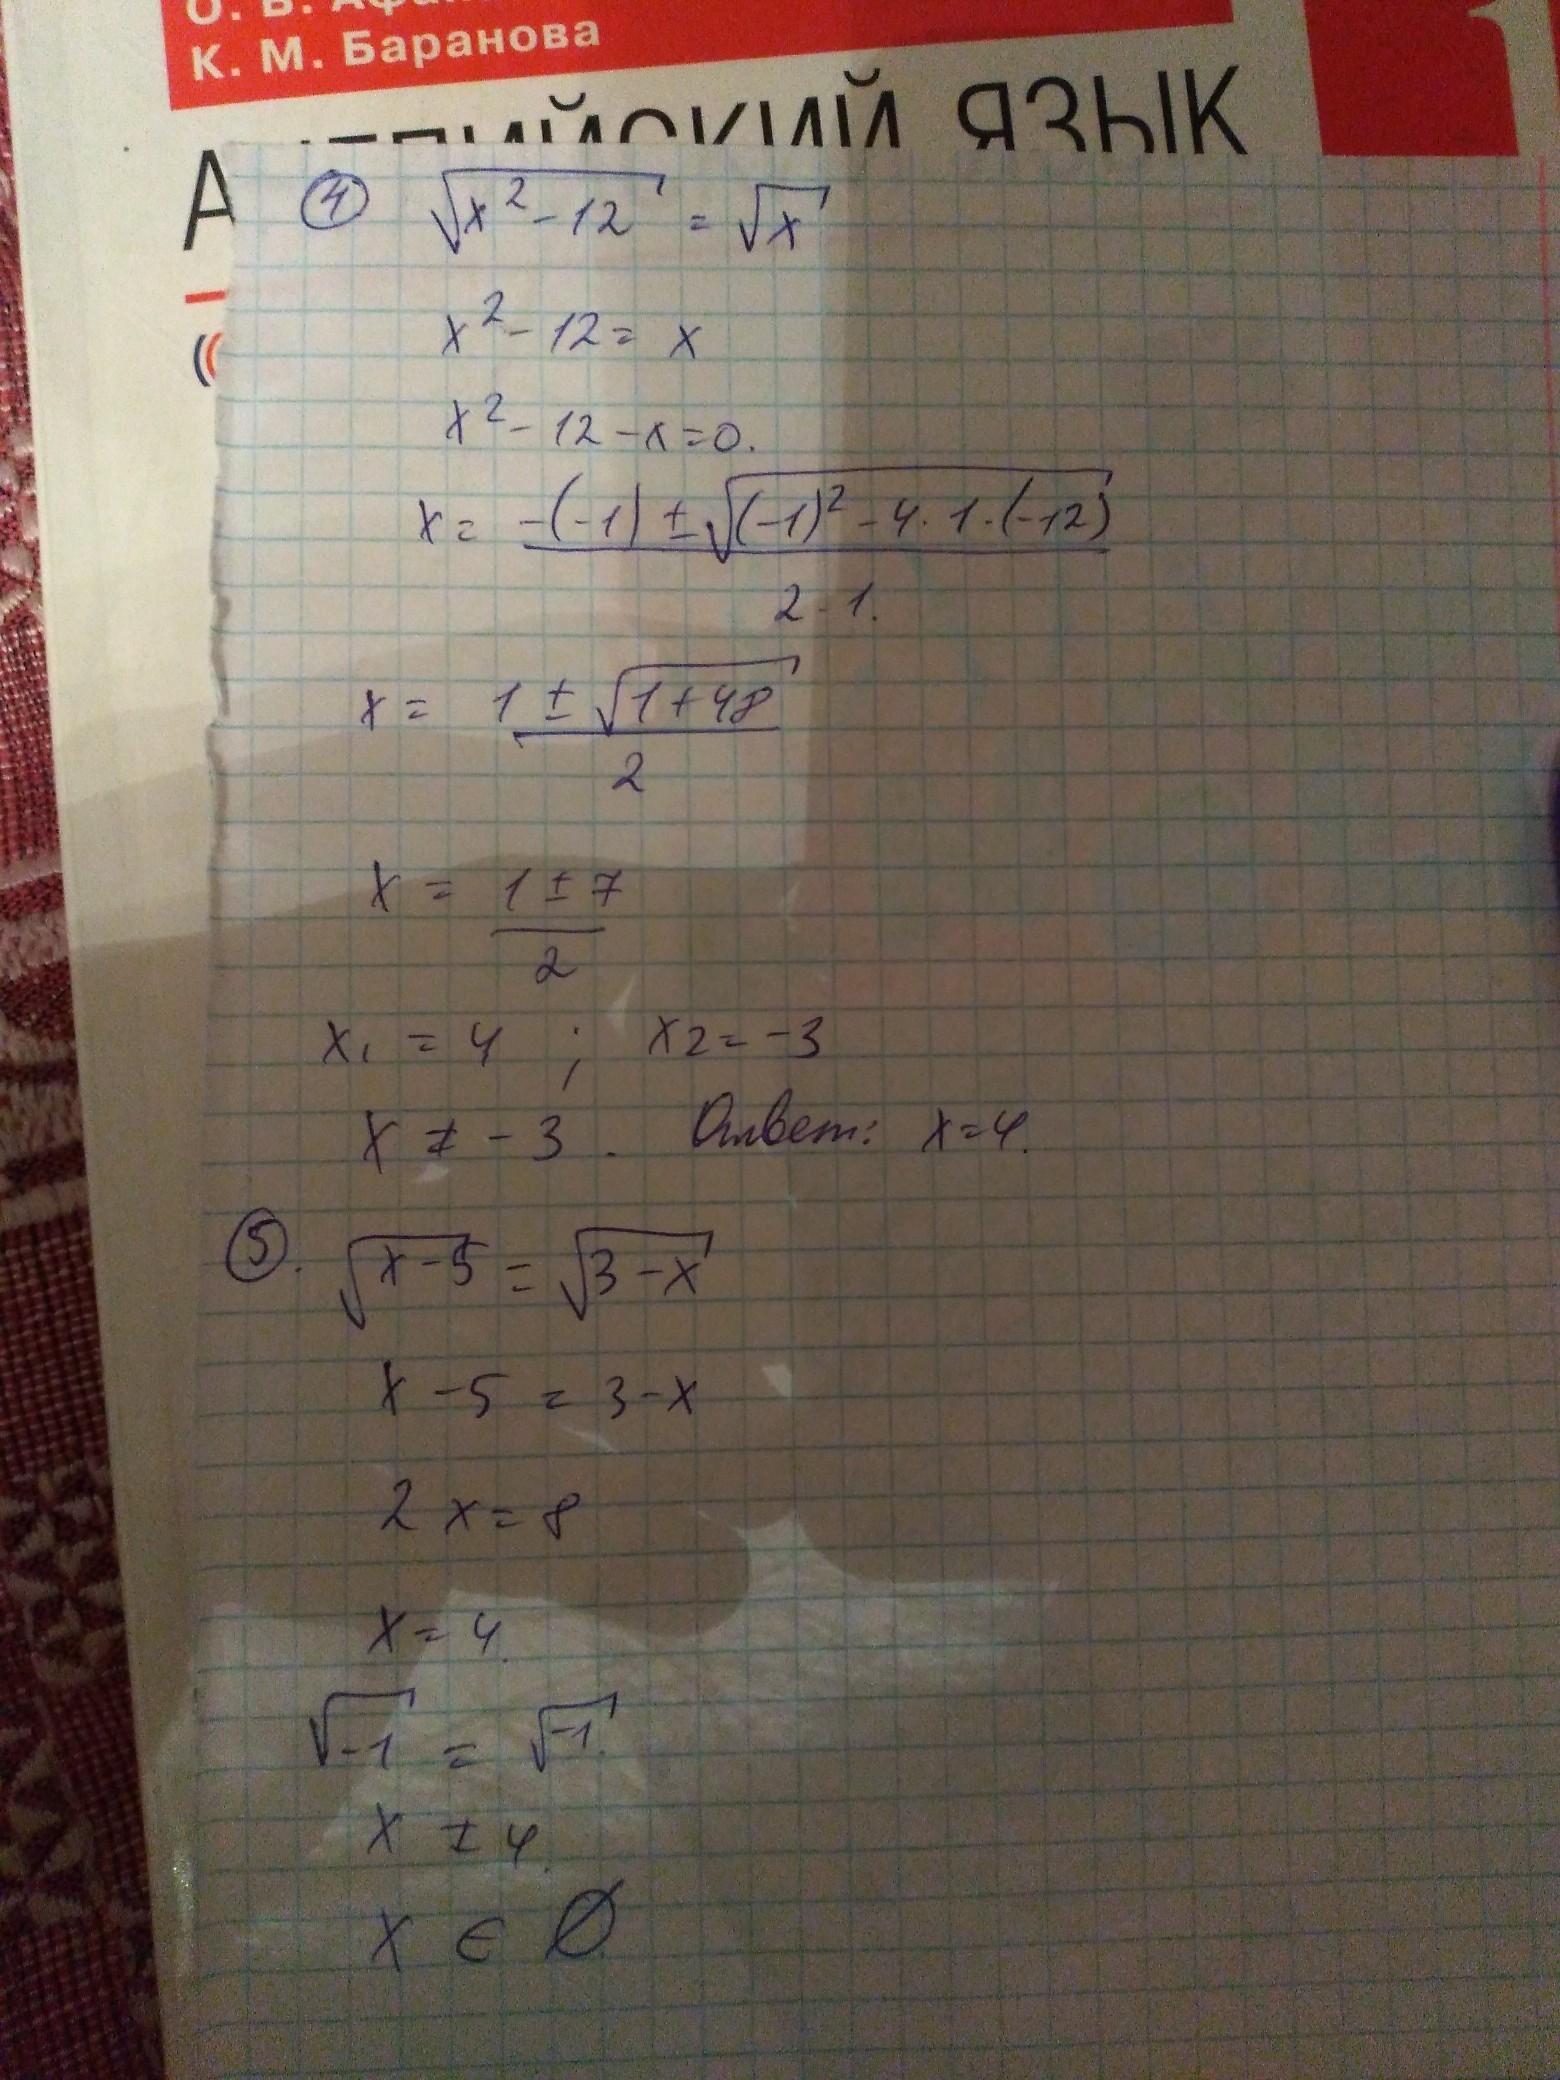 К. М. Баранова
АНГЛИЙСКИЙ ЯЗЫК
④ √(x² - 12) = √x
x² - 12 = x
x² - 12 - x = 0.
x = (-(-1) ± √((-1)² - 4 · 1 · (-12))) / (2 · 1).
x = (1 ± √(1 + 48)) / 2
x = (1 ± 7) / 2
x₁ = 4 ; x₂ = -3
x ≠ -3. Ответ: x = 4.
⑤. √(x - 5) = √(3 - x)
x - 5 = 3 - x
2x = 8
x = 4.
√-1 = √-1.
x ≠ 4.
x ∈ Ø